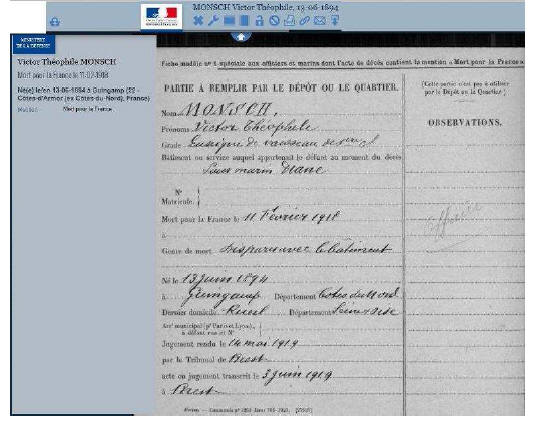 MONSCH Victor Théophile, 13-06-1894
MINISTÈRE
DE LA DÉFENSE
Victor Théophile MONSCH
Mort pour la France le 11-02-1918
Né(e) le/en 13-06-1894 à Guingamp (22 -
Côtes-d'Armor (ex Côtes-du-Nord), France)
Mention Mort pour la France
Fiche modèle n° 1 spéciale aux officiers et marins dont l'acte de décès contient la mention « Mort pour la France »
PARTIE A REMPLIR PAR LE DÉPÔT OU LE QUARTIER.
(Cette partie n'est pas à utiliser
par le Dépôt ou le Quartier)
OBSERVATIONS.
Nom MONSCH,
Prénoms Victor Théophile
Grade Enseigne de vaisseau de
Bâtiment ou service auquel appartenait le défunt au moment du décès
Sous marin Diane
N°
Matricule.
Mort pour la France le 11 Février 1918
à
Genre de mort disparu avec le bâtiment
Né le 13 Juin 1894
à Guingamp Département Côtes du Nord
Dernier domicile Rueil Département Seine et Oise
Arrt municipal (pr Paris et Lyon),
à défaut rue et N°
Jugement rendu le 14 mai 1919
par le Tribunal de Brest
acte ou jugement transcrit le 3 juin 1919
à Brest